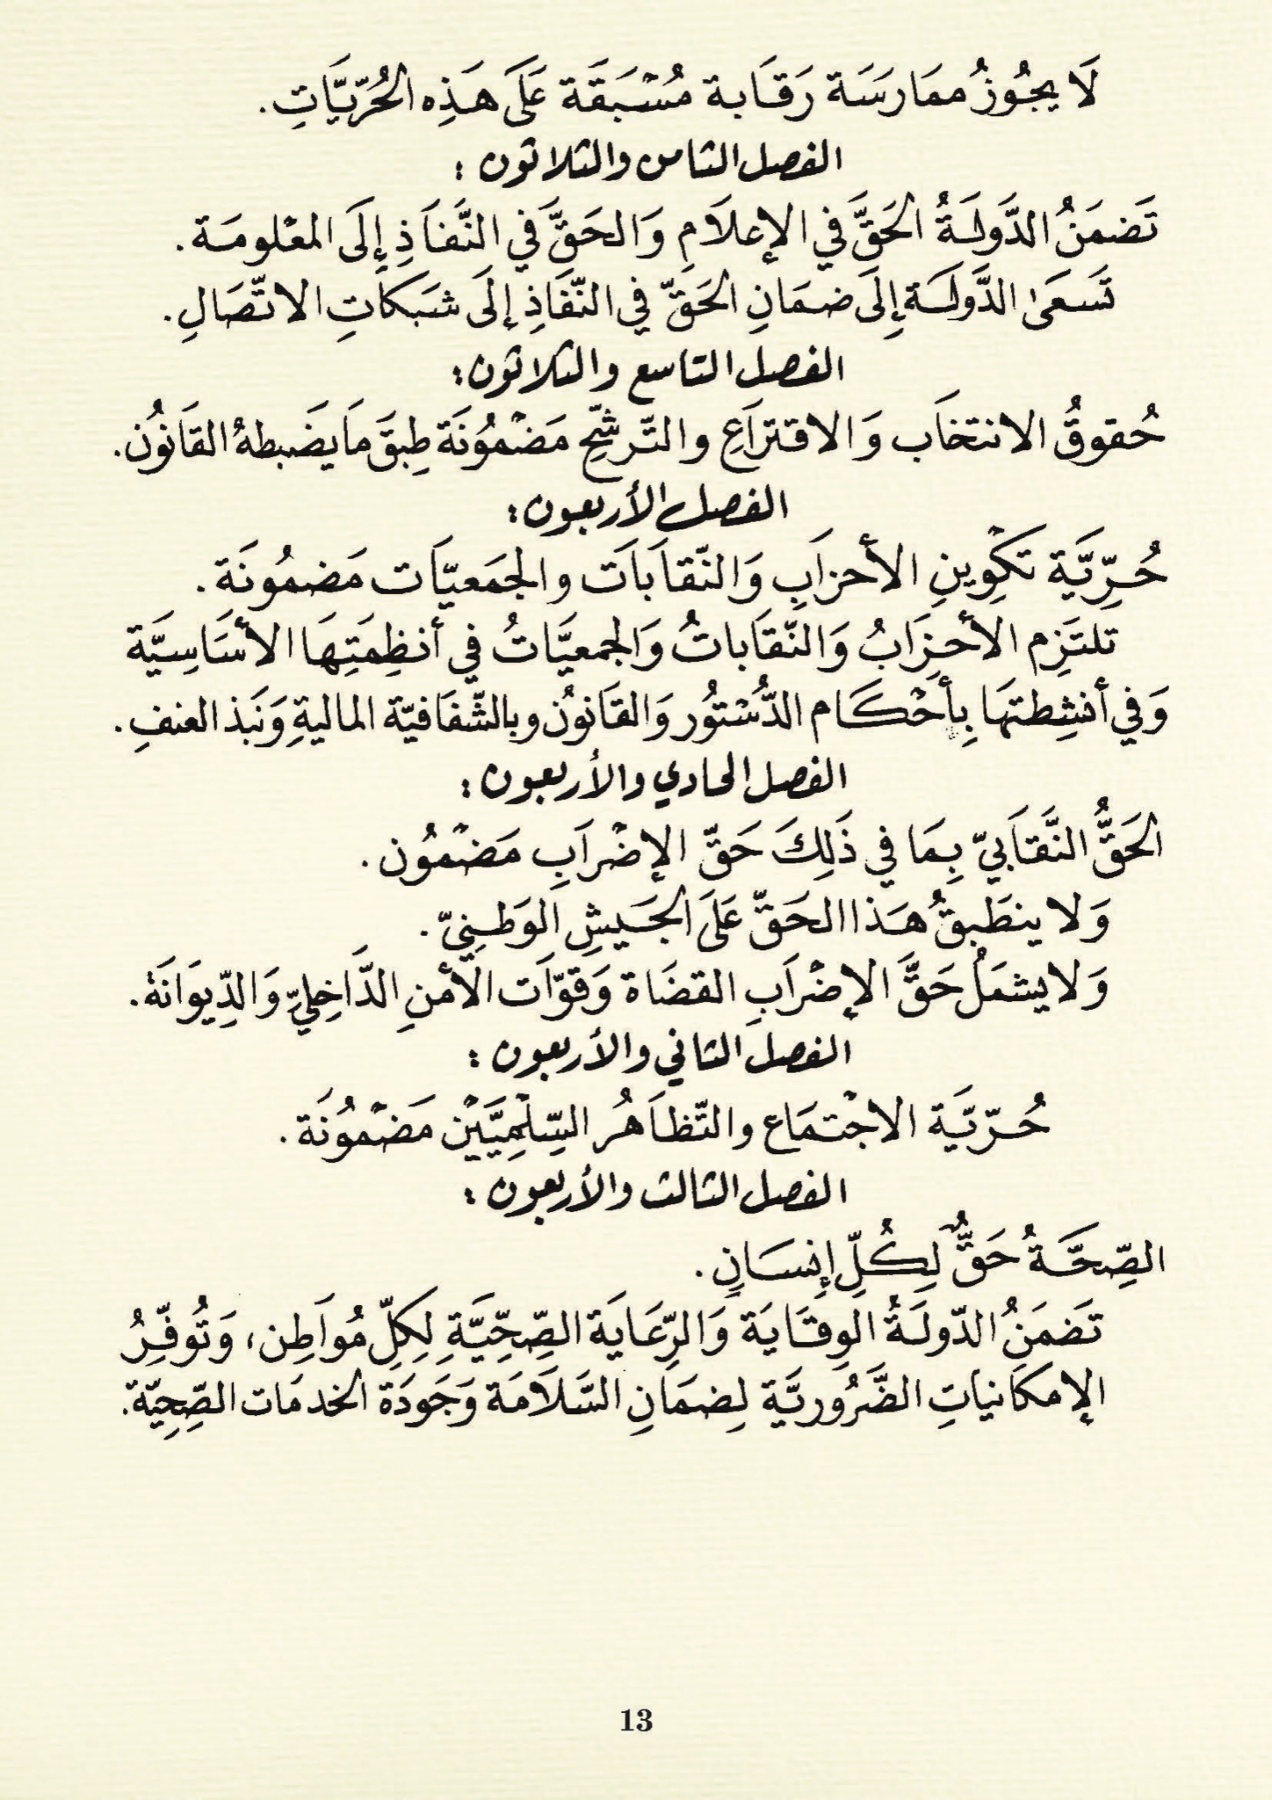 لَا يجُوزُ ممَارَسَة رَقَابة مُسْبَقَة عَلَى هَذِه الحُرّيَّاتِ.
الفصل الثامن والثلاثون :
تَضمَنُ الدَّولَةُ الحَقَّ في الإعلَامِ وَالحَقَّ في النَّفَاذِ إِلَى المعْلومَة.
تَسعَىٰ الدَّولَة إِلَى ضمَانِ الحَقّ في النّفَاذِ إلَى شبَكَاتِ الاتّصَالِ.
الفصل التاسع والثلاثون:
حُقوقُ الانتخَاب وَالاقتراَعِ والتّرشّحِ مَضْمُونَة طِبقَ مَا يضَبطهُ القَانُون.
الفصل الأربعون:
حُرِّيَّة تكْوِينِ الأحزاَبِ وَالنّقاَبَات والجَمَعيّات مَضمُونَة.
تلتَزِم الأحزَابُ وَالنّقَاباتُ وَالجمعيَّاتُ في أنظِمَتِهَا الأسَاسِيَّة
وَفي أنشِطتهَا بِأحْكَام الدُّسْتُور وَالقَانوُن وبالشّفَافيّة الماليةِ وَنَبذ العنفِ.
الفصل الحادي والأربعون :
الحَقُّ النَّقاَبيّ بِمَا في ذَلِكَ حَقّ الإضْراَبِ مَضْمُون.
وَلا ينطَبقُ هَذا الحَقّ عَلَى الجَيشِ الوَطنِيّ.
وَلا يشمَلُ حَقَّ الإضْراَبِ القضَاة وَقوّاَت الأمْنِ الدَّاخِليِّ وَالدِّيوَانَة.
الفصل الثاني والأربعون :
حُرّيَّة الاجْتمَاع والتّظاَهُر السِّلْمِيَّيْن مَضْمُونَة.
الفصل الثالث والأربعون :
الصِّحَّةُ حَقٌّ لِكُلِّ إنسَانٍ.
تَضمَنُ الدّولَةُ الوِقَايَة وَالرِّعَايَة الصِّحِّيَّةِ لِكلِّ مُواَطِن، وَتُوفِّرُ
الإمكَانياتِ الضَّرُوريَّة لِضمَانِ السَّلَامَة وَجَودَة الخدمَات الصِّحِيّة.
13